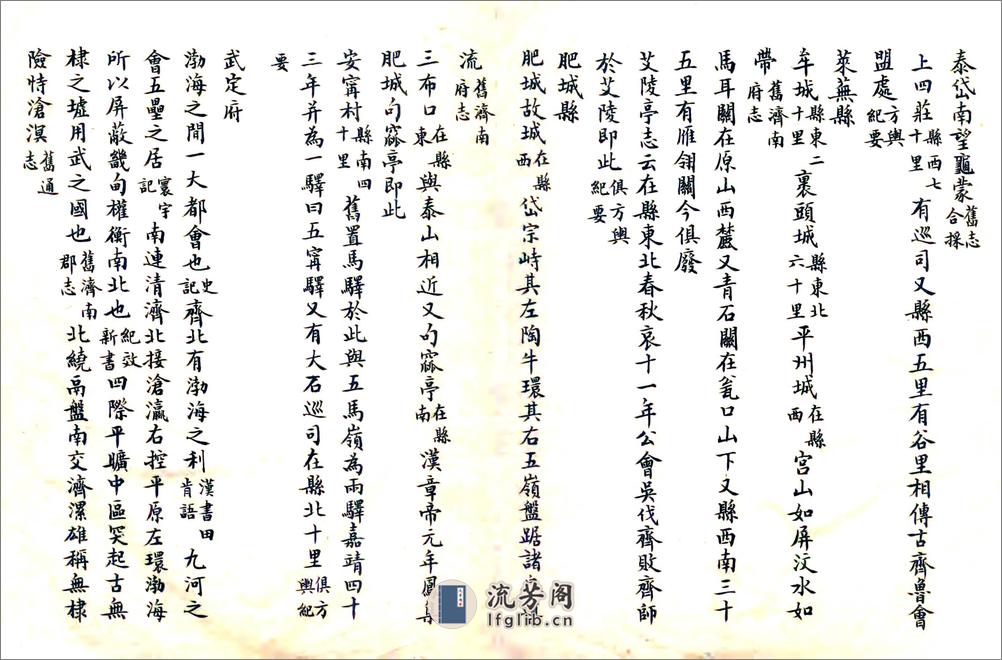 泰岱南望龜蒙舊志合採
上四莊縣西七十里有巡司又縣西五里有谷里相傳古齊魯會
盟處方輿紀要
萊蕪縣
牟城縣東二十里裹頭城縣東北六十里平州城在縣西宮山如屏汶水如
帶舊濟南府志
馬耳關在原山西麓又青石關在瓮口山下又縣西南三十
五里有雁翎關今俱廢
艾陵亭志云在縣東北春秋哀十一年公會吳伐齊敗齊師
於艾陵即此俱方輿紀要
肥城縣
肥城故城在縣西岱宗峙其左陶牛環其右五嶺盤踞諸
流舊濟南府志
三布口在縣東與泰山相近又句窳亭在縣南漢章帝元年鳳
肥城句窳亭即此
安甯村縣南四十里舊置馬驛於此與五馬嶺為兩驛嘉靖四十
三年并為一驛曰五甯驛又有大石巡司在縣北十里俱方輿紀
要
武定府
渤海之間一大都會也史記齊北有渤海之利漢書田肯語九河之
會五壘之居寰宇記南連清濟北接滄瀛右控平原左環渤海
所以屏蔽畿甸權衡南北也紀效新書四際平曠中區突起古無
棣之墟用武之國也舊濟南郡志北繞鬲盤南交濟漯雄稱無棣
險恃滄溟舊通志
流芳阁
lfglib.cn